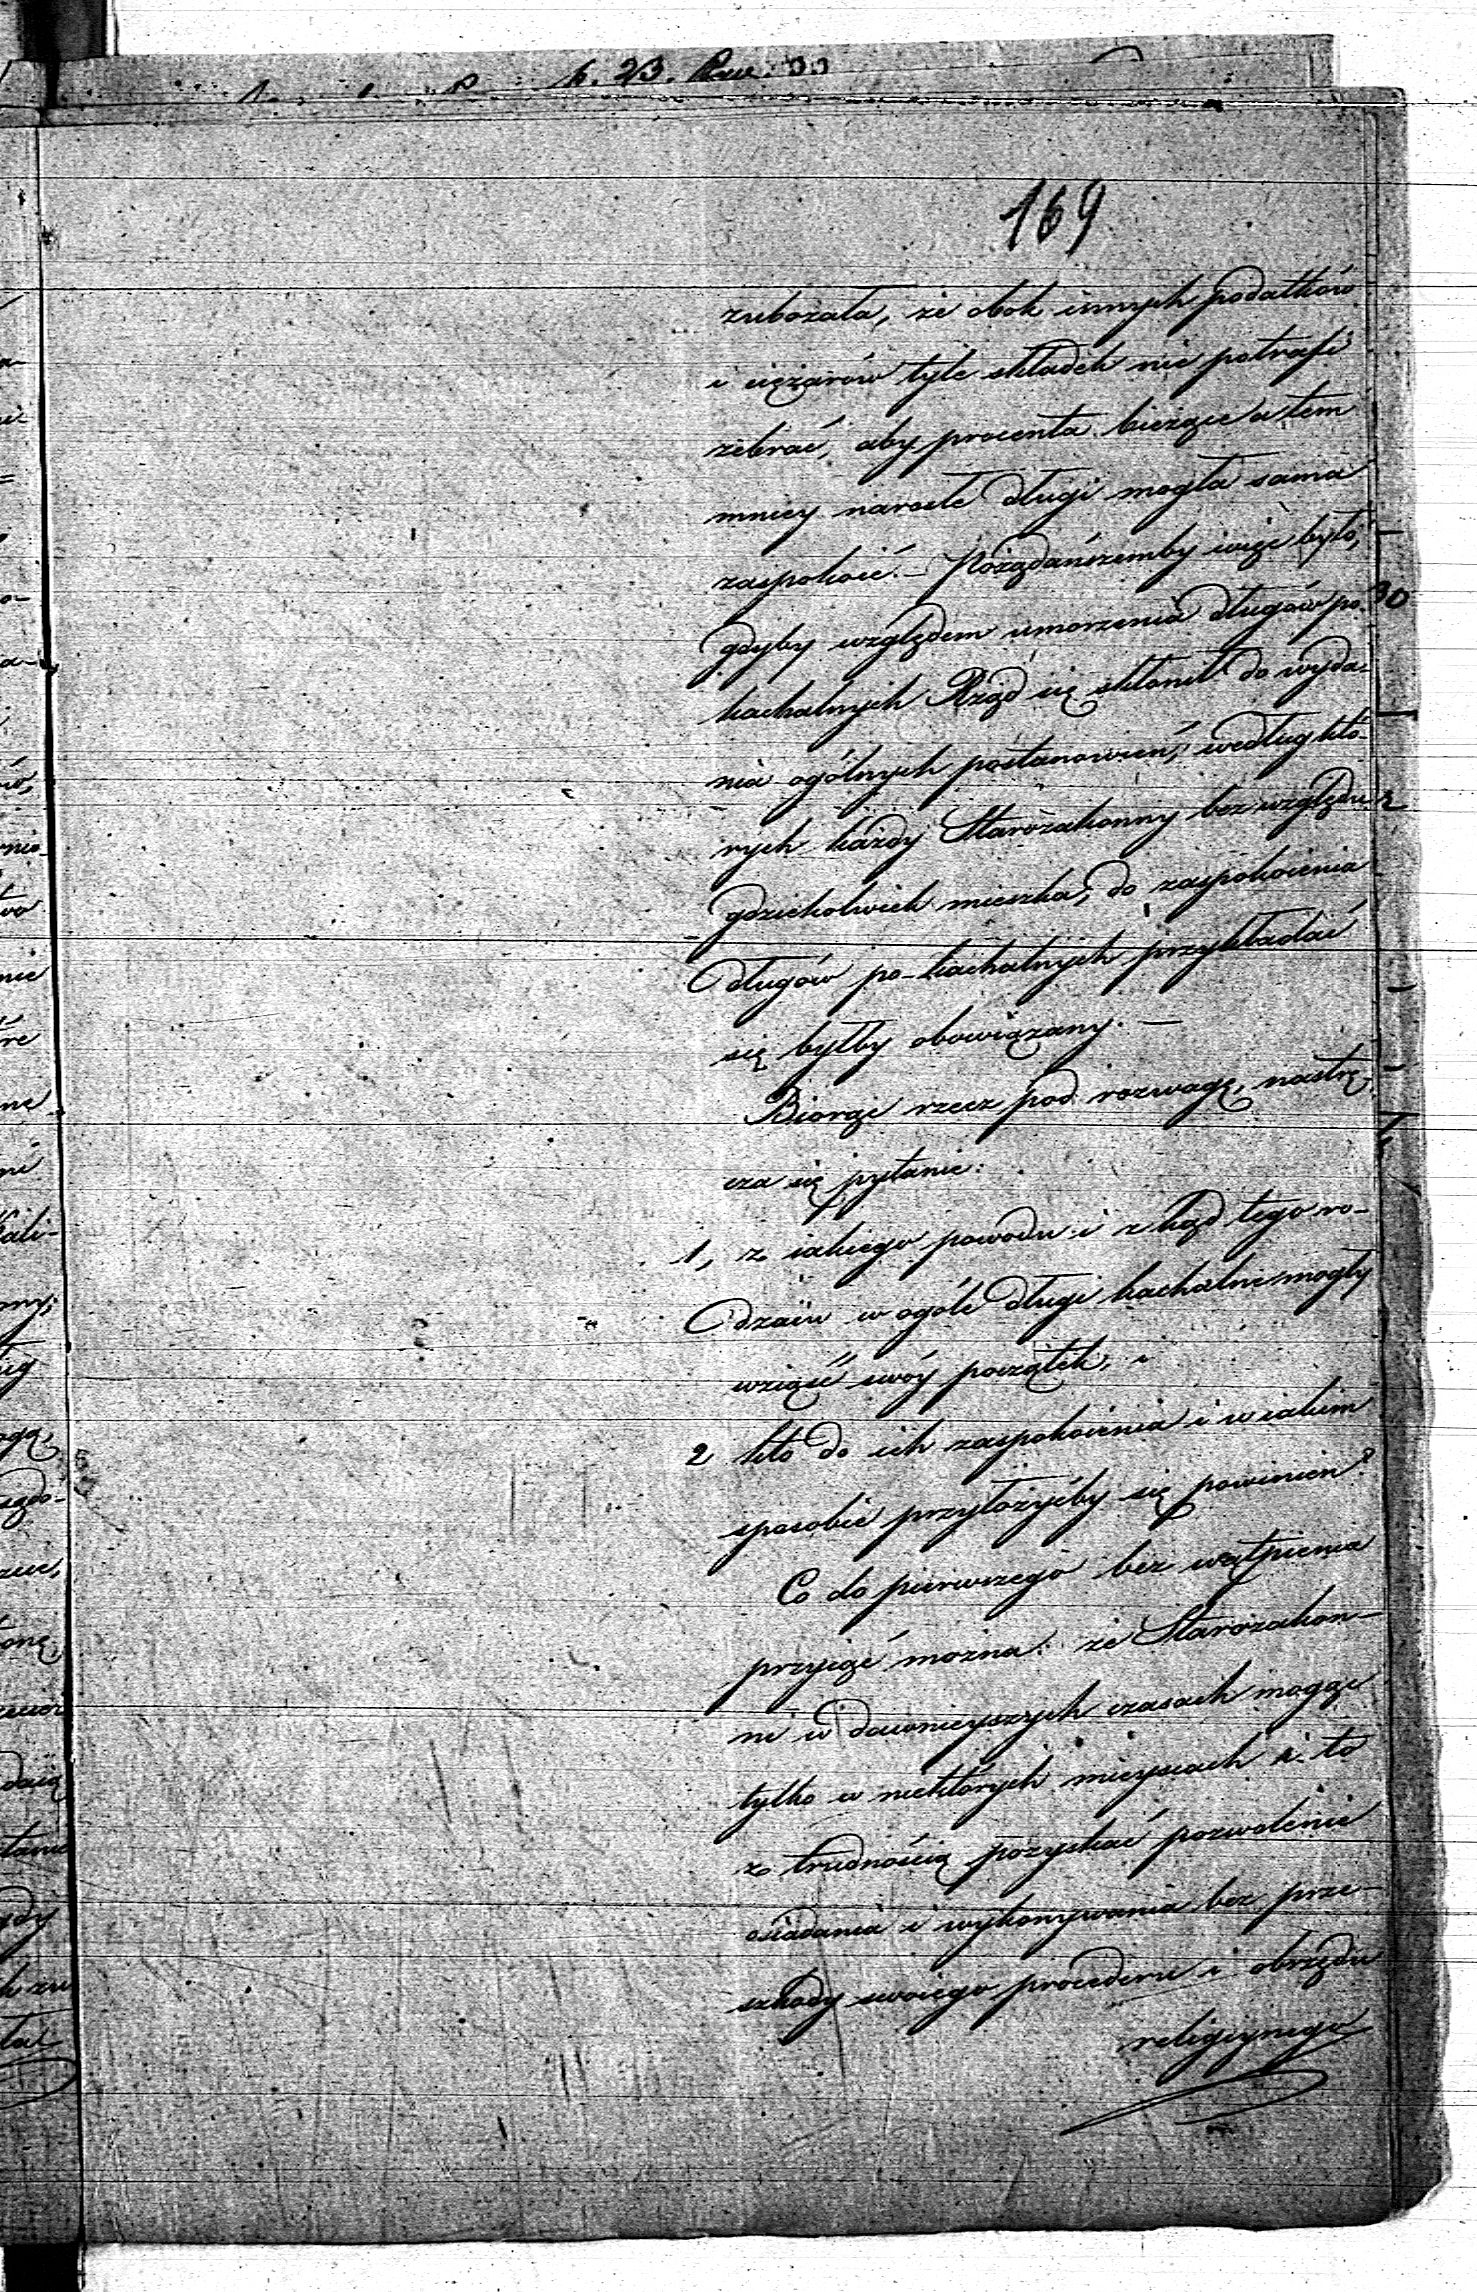 169
zubożała, że obok innych podatków
i ciężarów tyle składek nie potrafi
zebrać, aby procenta bieżące a tem
mniey narosłe długi mogła sama
zaspokoić. – Pożądańszemby więc było,
gdyby względem umorzenia długów po-
kachalnych Rząd się skłonił do wyda-
nia ogólnych postanowień, według któ-
rych każdy Starozakonny bez względu
gdziekolwiek mieszka, do zaspokoienia
długów po-kachalnych przykładać
się byłby obowiązany. –
Biorąc rzecz pod rozwagę, nastrę-
cza się pytanie:
1, z iakiego powodu i zkąd tego ro-
dzaiu w ogóle długi kachalne mogły
wziąść swóy początek, i
2 kto do ich zaspokoienia i w iakim
sposobie przyłożyćby się powinien?
Co do pierwszego bez wątpienia
przyiąć można: że Starozakon-
ni w dawnieyszych czasach mogąc
tylko w niektórych mieyscach i to
z trudnością pozyskać pozwolenie
osiadania i wykonywania bez prze-
szkody swoiego procederu i obrzędu
religiynego